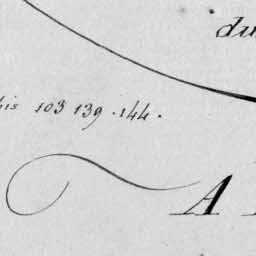 du
his 103 139 .144.
A